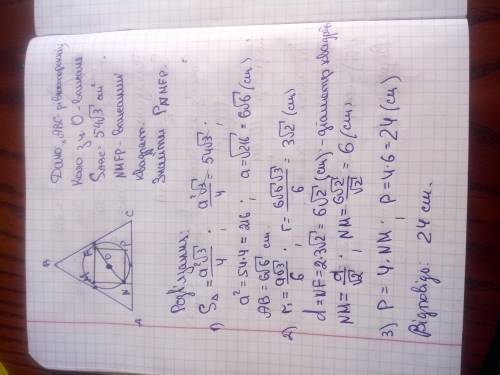 Дано: △ABC-рівносторонній,
Коло з ц. О - вписане
S△ABC = 54√3 см²
NMFP - вписаний
квадрат.
Знайти P NMFP.
B
M
F
O
N
P
A
C
Розв'язання:
1) S△ = a²√3/4 ; a²√3/4 = 54√3 ;
a² = 54·4 = 216 ; a = √216 = 6√6 (см) ;
AB = 6√6 см.
2) r = a√3/6 ; r = 6√6√3/6 = 3√2 (см)
d = NF = 2·3√2 = 6√2 (см) - діаметр квадр.
NM = d/√2 ; NM = 6√2/√2 = 6 (см).
3) P = 4·NM ; P = 4·6 = 24 (см)
Відповідь: 24 см.